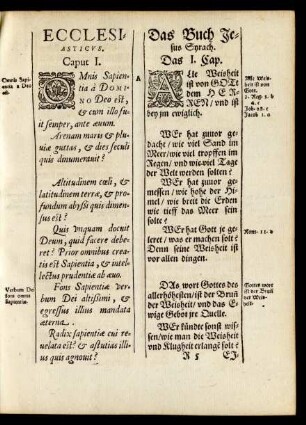 ECCLESI-
ASTICVS.
Caput I.
Omnis Sapien-
tia à Deo
est.
OMnis Sapien-
tia à DOMI-
NO Deo est,
& cum illo fu-
it semper, ante æuum.
Arenam maris & plu-
uiæ guttas, & dies seculi
quis dinumerauit?
Altitudinem cœli, &
latitudinem terræ, & pro-
fundum abyssi quis dimen-
sus est?
Quis unquam docuit
Deum, quid facere debe-
ret? Prior omnibus crea-
ta est Sapientia, & intel-
lectus prudentiæ ab æuo.
Verbum De
fons omnis
Sapientiæ.
Fons Sapientiæ ver-
bum Dei altissimi, &
egressus illius mandata
æterna.
Radix sapientiæ cui re-
uelata est? & astutias illi-
us quis agnouit?
Das Buch Je-
sus Syrach.
Das I. Cap.
ALle Weisheit
ist von GOTt
dem HER-
REN/ und ist
bey jm ewiglich.
Alle Weis-
heit von
Gott.
WEr hat zuuor ge-
dacht/ wie viel Sand im
Meer/ wie viel tropffen im
Regen/ und wie viel Tage
der Welt werden solten?
WEr hat zuuor ge-
messen/ wie hohe der Hi-
mel/ wie breit die Erden
wie tieff das Meer sein
solte?
WEr hat Gott je ge-
leret/ was er machen solt?
Denn seine Weisheit ist
vor allen dingen.
Rom. 11.
DAs wort Gottes des
allerhöhesten/ ist der Brun
der Weisheit/ und das E-
wige Gebot jre Quelle.
Gottes wort
ist der Brun
der Weis-
heit.
WEr kündte sonst wis-
sen/ wie man die Weisheit
und Klugheit erlangē solt?
R 5
EJ-